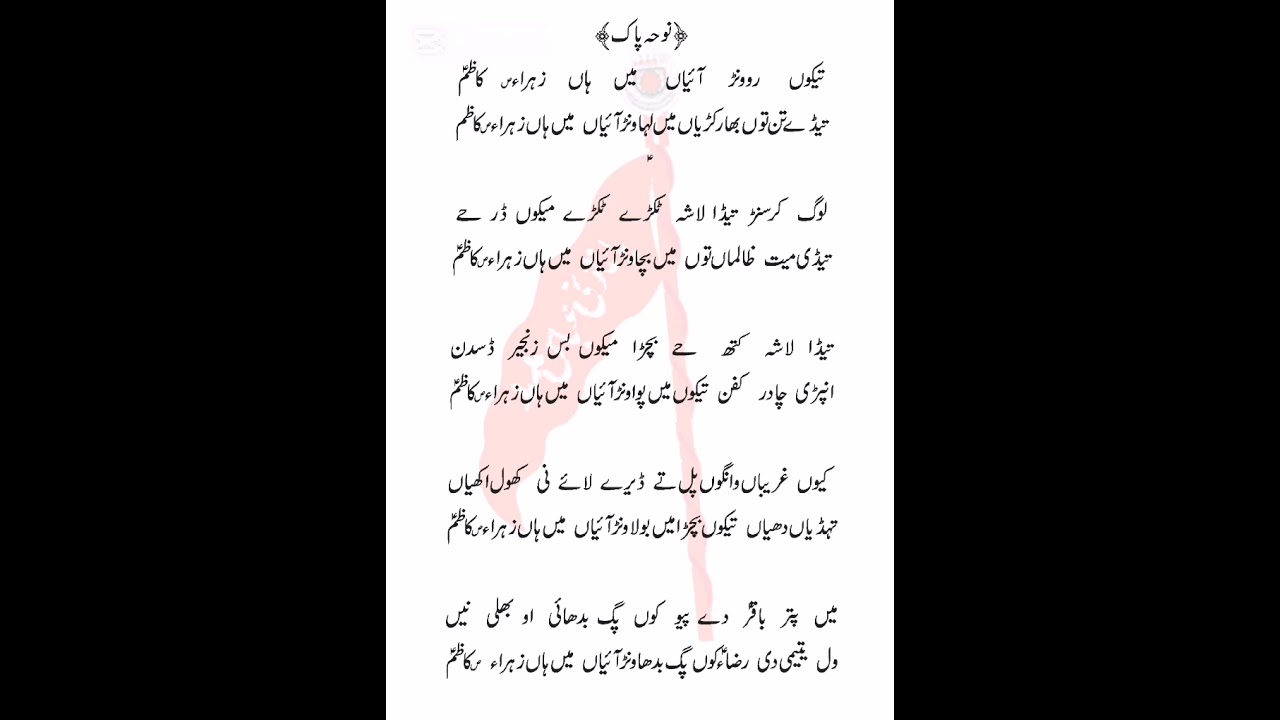 ﴿نوحہ پاک﴾
تیکوں روونڑ آئیاں میں ہاں زہراءس کاظمؑ
تیڈے تن توں بھار کڑیاں میں لہاونڑ آئیاں میں ہاں زہراءس کاظم
ؑ
لوگ کر سنڑ تیڈا لاشہ ٹکڑے ٹکڑے میکوں ڈر حے
تیڈی میت ظالماں توں میں بچاونڑ آئیاں میں ہاں زہراءس کاظمؑ
تیڈا لاشہ کتھ حے بچڑا میکوں بس زنجیر ڈسدن
انپڑی چادر کفن تیکوں میں پواونڑ آئیاں میں ہاں زہراءس کاظمؑ
کیوں غریباں وانگوں پل تے ڈیرے لائے نی کھول اکھیاں
تہڈیاں دھیاں تیکوں بچڑا میں بولاونڑ آئیاں میں ہاں زہراءس کاظمؑ
میں پتر باقرؑ دے پیو کوں پگ بدھائی او بھلی نیں
ول یتیمی دی رضاؑء کوں پگ بدھاونڑ آئیاں میں ہاں زہراء س کاظمؑ